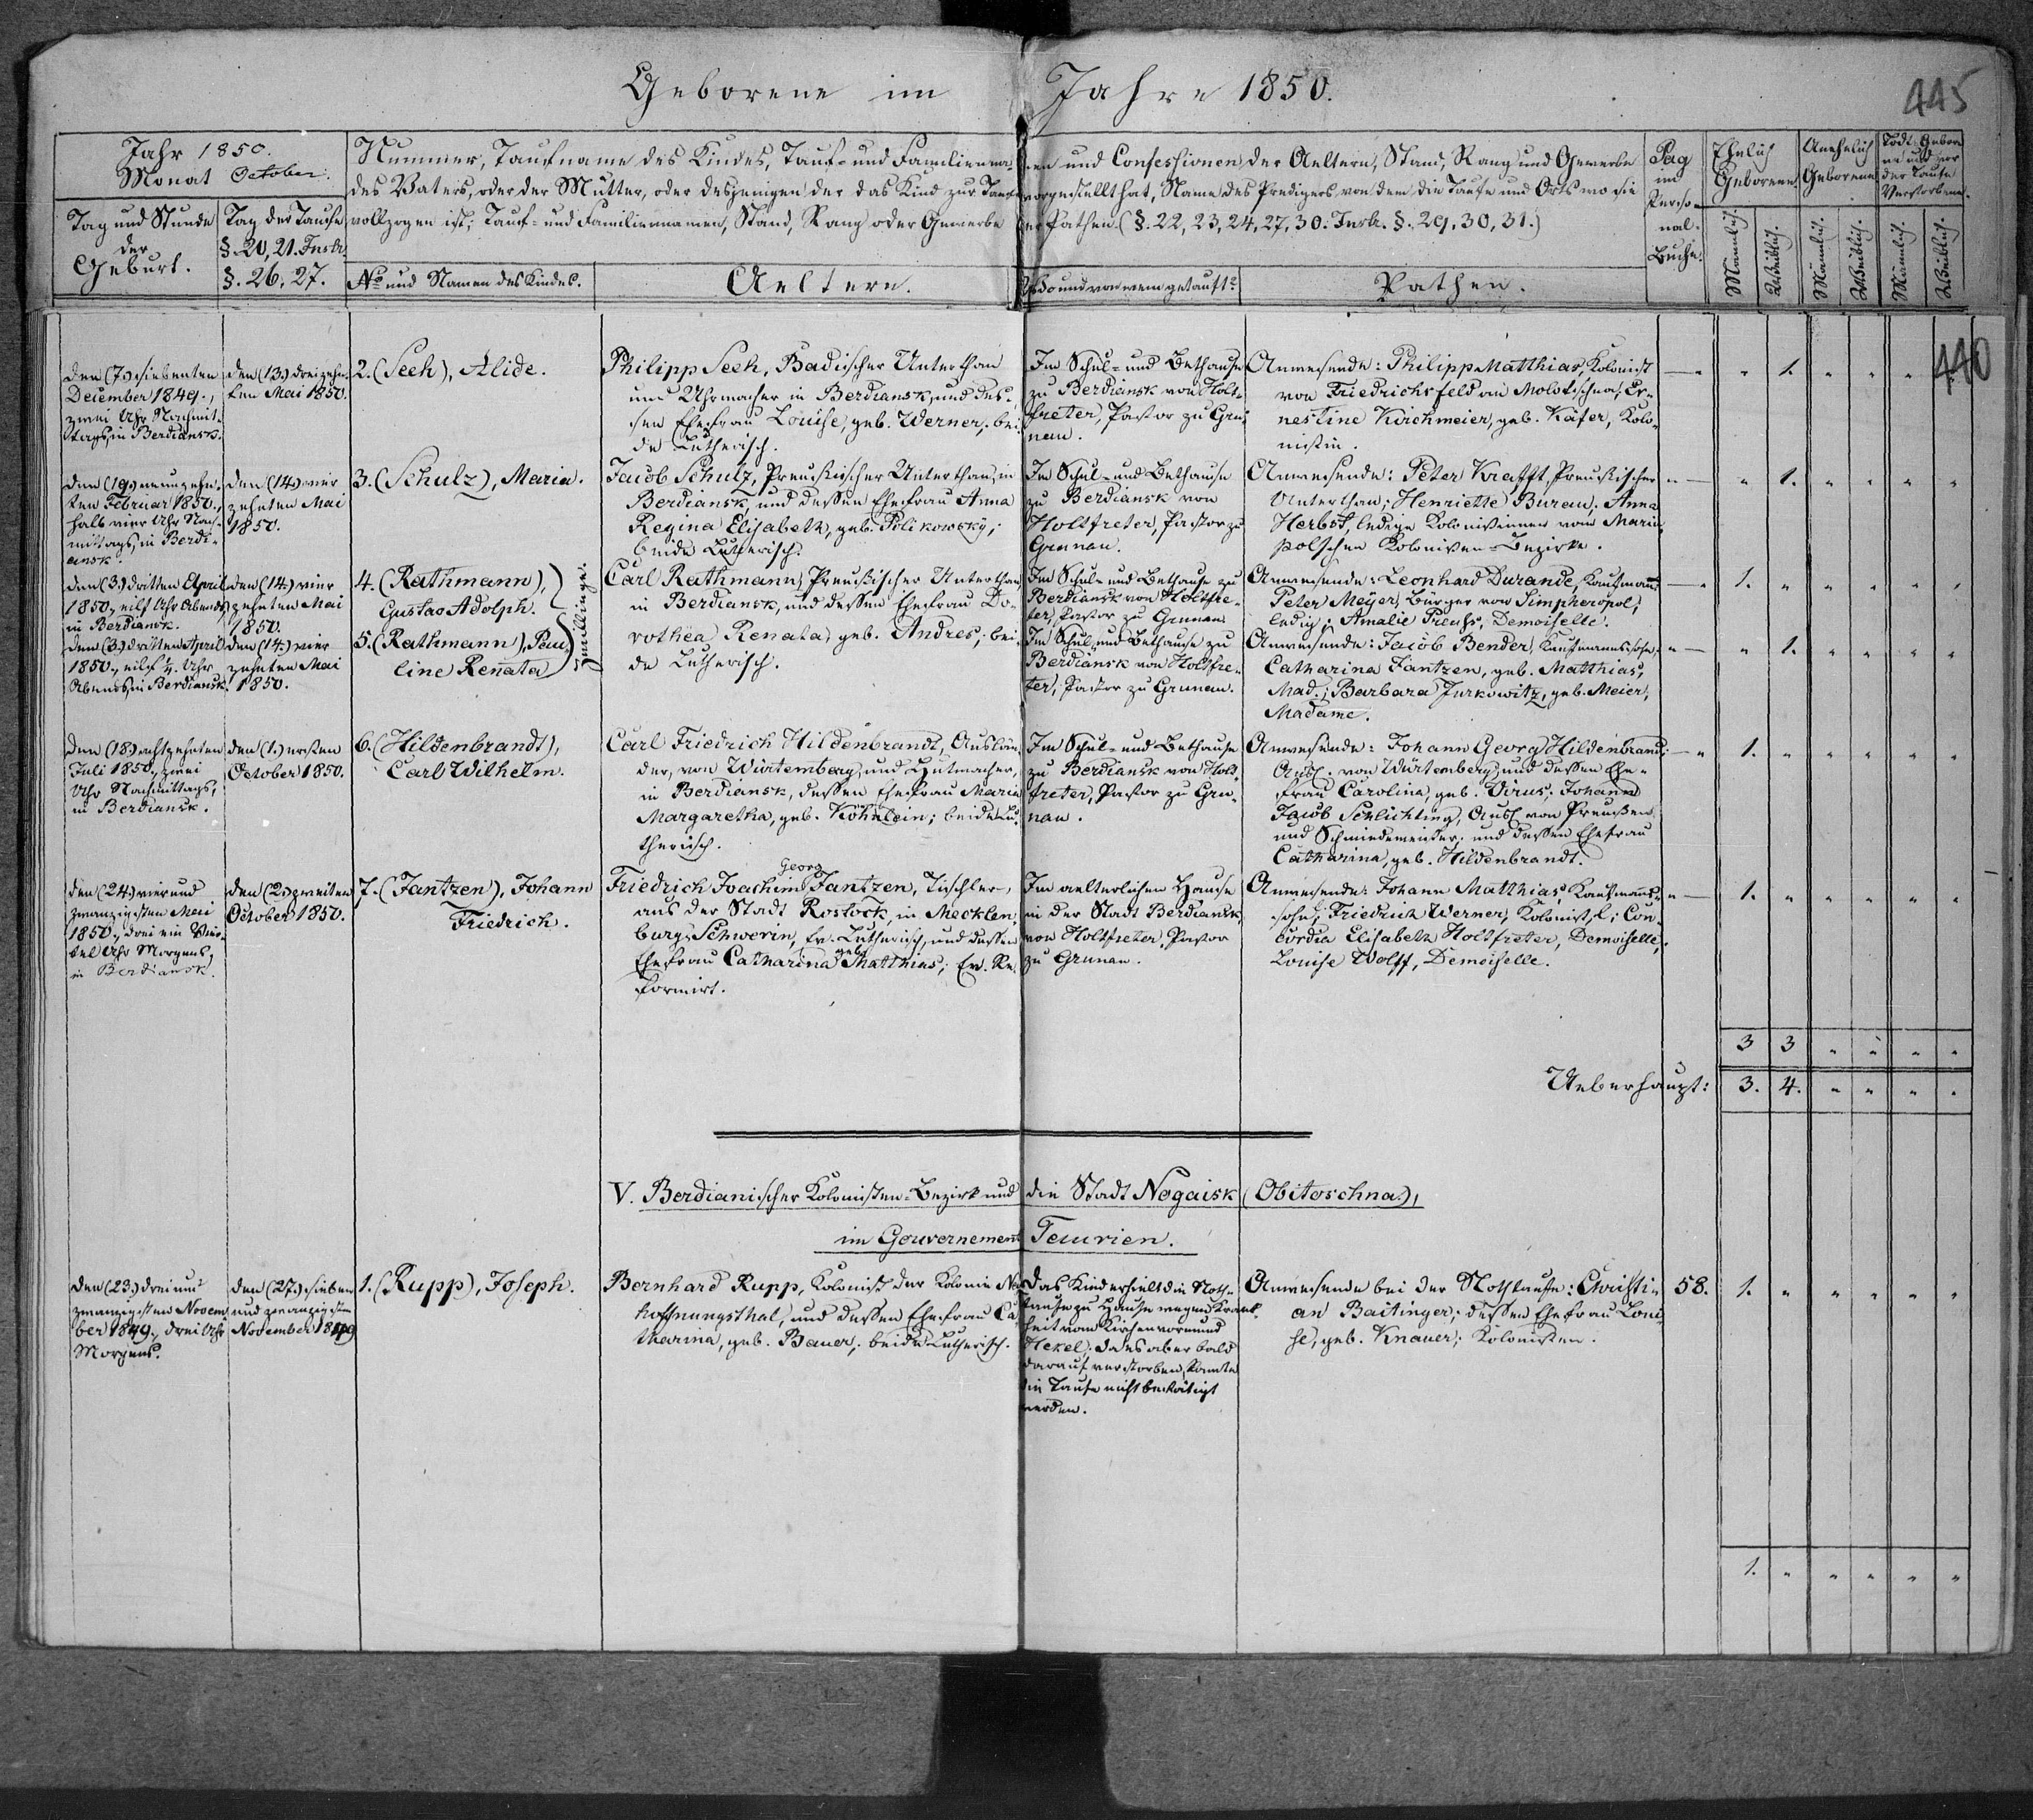 Geborene im Jahre 1850.
445
Jahr 1850.
Monat October.
Tag und Stunde
der
Geburt.
Tag der Taufe
§. 20, 21. Instr.
§. 26, 27.
Nummer, Taufname des Kindes, Tauf- und Familienna-men und Confessionen der Aeltern, Stand, Rang und Gewerbe
des Vaters, oder der Mutter, oder desjenigen der das Kind zur Taufe vorgestellt hat, Name des Predigers von dem die Taufe und Orts wo sie
vollzogen ist; Tauf- und Familiennamen, Stand, Rang oder Gewerbe der Pathen (§. 22, 23, 24, 27, 30. Instr. §. 29, 30, 31.)
No und Namen des Kindes.
Aeltern.
Wo und von wem getauft?
Pathen.
Pag
im
Perso-
nal-
Buche.
Ehelich
Geborene.
Unehelich
Geborene
Todt-Gebor
ne und vor
der Taufe
Verstorbene.
Männlich.
Weiblich.
Männlich.
Weiblich.
Männlich.
Weiblich.
440
den (7.) siebenten
December 1849.,
zwei Uhr Nachmit-
tags, in Berdiansk.
den (13.) dreizehn-
ten Mai 1850.
2. (Seeh), Alide.
Philipp Seeh, Badischer Unterthan
und Uhrmacher in Berdiansk, und des-
sen Ehefrau Louise, geb. Werner; bei-
de Lutherisch.
Im Schul- und Bethause
zu Berdiansk von Holt-
freter, Pastor zu Gru-
nau.
Anwesende: Philipp Matthias, Kolonist
von Friedrichsfeld an Molotschna; Er-
nestine Kirchmeier, geb. Käfer, Kolo-
nistin.
— " " 1. " " "
den (19.) neunzehn-
ten Februar 1850.,
halb vier Uhr Nach-
mittags, in Berdi-
ansk.
den (14.) vier
zehnten Mai
1850.
3. (Schulz), Maria.
Jacob Schulz, Preußischer Unterthan, in
Berdiansk, und dessen Ehefrau Anna
Regina Elisabeth, geb. Polikowsky;
beide Lutherisch.
Im Schul- und Bethause
zu Berdiansk von
Holtfreter, Pastor zu
Grunau.
Anwesende: Peter Krafft, Preußischer
Unterthan; Henriette Bureu; Anna
Herbst, ledige Kolonistinnen vom Mariu-
polschen Kolonisten-Bezirke.
" — " 1. " " " "
den (3.) dritten April
1850., eilf Uhr Abends
in Berdiansk.
den (14.) vier
zehnten Mai
1850.
4. (Rathmann),
Gustav Adolph.
Zwillinge.
Carl Rathmann, Preußischer Unterthan
in Berdiansk, und dessen Ehefrau Do-
rothea Renata, geb. Andres; bei-
de Lutherisch.
Im Schul- und Bethause zu
Berdiansk von Holtfre-
ter, Pastor zu Grunau.
Anwesende: Leonhard Durande, Kaufmann;
Peter Meyer, Bürger von Simpheropol,
ledig; Amalie Preuss, Demoiselle.
— " 1. " " " " "
den (3.) dritten April
1850., eilf ½ Uhr
Abends, in Berdiansk.
den (14.) vier
zehnten Mai
1850.
5. (Rathmann), Pau-
line Renata
Im Schul- und Bethause zu
Berdiansk von Holtfre-
ter, Pastor zu Grunau.
Anwesende: Jacob Bender, Kaufmannssohn;
Catharina Jantzen, geb. Matthias,
Mad.; Barbara Jurkowitz, geb. Meier,
Madame.
" — " 1. " " " "
den (18.) achtzehnten
Juli 1850., zwei
Uhr Nachmittags,
in Berdiansk.
den (1.) ersten
October 1850.
6. (Hildenbrandt),
Carl Wilhelm.
Carl Friedrich Hildenbrandt, Auslän-
der, von Würtemberg, und Hutmacher,
in Berdiansk, dessen Ehefrau Maria
Margaretha, geb. Köhnlein; beide Lu-
therisch.
Im Schul- und Bethause
zu Berdiansk von Holt-
freter, Pastor zu Gru-
nau.
Anwesende: Johann Georg Hildenbrand;
Ausl. von Würtemberg, und dessen Ehe-
frau Carolina, geb. Virus; Johann
Jacob Schlichting, Ausl. von Preußen
und Schmiedemeister, und dessen Ehefrau
Catharina, geb. Hildenbrandt.
— " 1. " " " " "
den (24.) vier und
zwanzigsten Mai
1850., drei ein Vier-
tel Uhr Morgens,
in Berdiansk.
den (2.) zweiten
October 1850.
7. (Jantzen), Johann
Friedrich.
Georg
Friedrich Joachim Jantzen, Tischler,
aus der Stadt Rostock, in Mecklen-
burg-Schwerin, Ev. Lutherisch, und dessen
Ehefrau Catharina geb. Matthias; Ev. Re-
formirt.
Im aelterlichen Hause
in der Stadt Berdiansk,
von Holtfreter, Pastor
zu Grunau.
Anwesende: Johann Matthias, Kaufmanns-
sohn; Friedrich Werner, Kolonist, l.; Con-
cordia Elisabeth Holtfreter, Demoiselle;
Louise Wolff, Demoiselle.
" — 1. " " " " "
3 3 " " " "
Ueberhaupt: 3. 4. " " " "
V. Berdianischer Kolonisten-Bezirk und die Stadt Nogaisk (Obitoschna),
im Gouvernement Taurien.
den (23.) drei und
zwanzigsten Novem-
ber 1849., drei Uhr
Morgens.
den (27.) sieben
und zwanzigsten
November 1849
1. (Rupp), Joseph.
Bernhard Rupp, Kolonist der Kolonie Neu-
hoffnungsthal, und dessen Ehefrau Ca-
tharina, geb. Bauer; beide Lutherisch.
Das Kind erhielt die Noth-
taufe zu Hause wegen Krank-
heit vom Kirchenvormund
Hekel; da es aber bald
darauf verstorben, konnte
die Taufe nicht bestätigt
werden.
Anwesende bei der Nothtaufe: Christi-
an Baitinger; dessen Ehefrau Loui-
se, geb. Knauer; Kolonisten.
58. 1. " " " " "
1. " " " " "